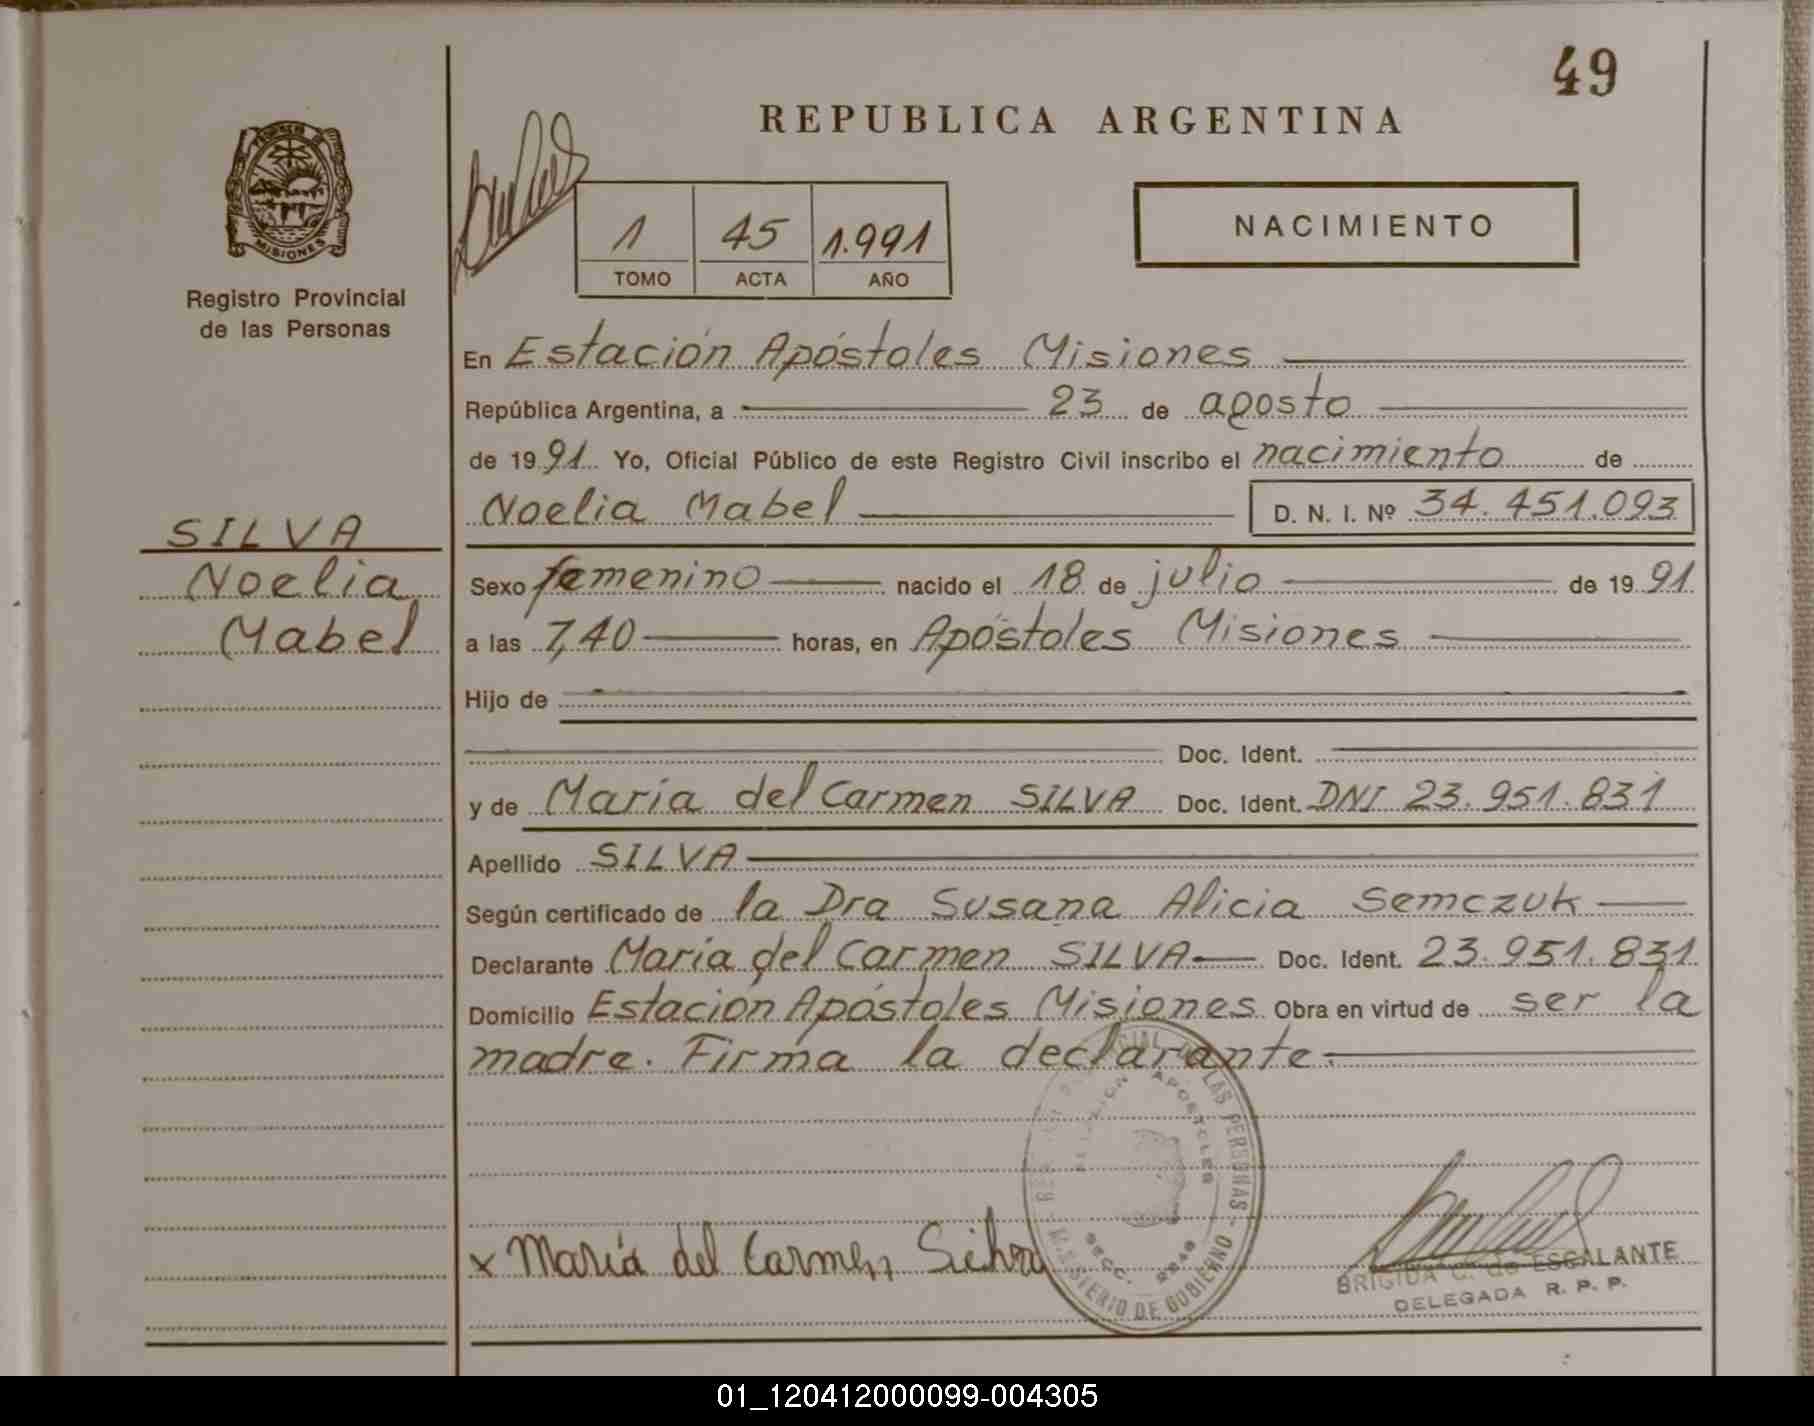 49
REPUBLICA ARGENTINA
MISIONES
Registro Provincial
de las Personas
1 45 1.991
TOMO ACTA AÑO
NACIMIENTO
En Estación Apóstoles Misiones
República Argentina, a 23 de agosto
de 1991 Yo, Oficial Público de este Registro Civil inscribo el nacimiento de
Noelia Mabel D. N. I. Nº 34.451.093
SILVA
Noelia
Mabel
Sexo femenino nacido el 18 de julio de 1991
a las 7,40 horas, en Apóstoles Misiones
Hijo de
Doc. Ident.
y de María del Carmen SILVA Doc. Ident. DNI 23.951.831
Apellido SILVA
Según certificado de la Dra Susana Alicia Semczuk
Declarante María del Carmen SILVA Doc. Ident. 23.951.831
Domicilio Estación Apóstoles Misiones Obra en virtud de ser la
madre. Firma la declarante.
LAS PERSONAS - MINISTERIO DE GOBIERNO
APOSTOLES
SECC.
x María del Carmen Silva
BRIGIDA G. de ESCALANTE
DELEGADA R. P. P.
01_120412000099-004305